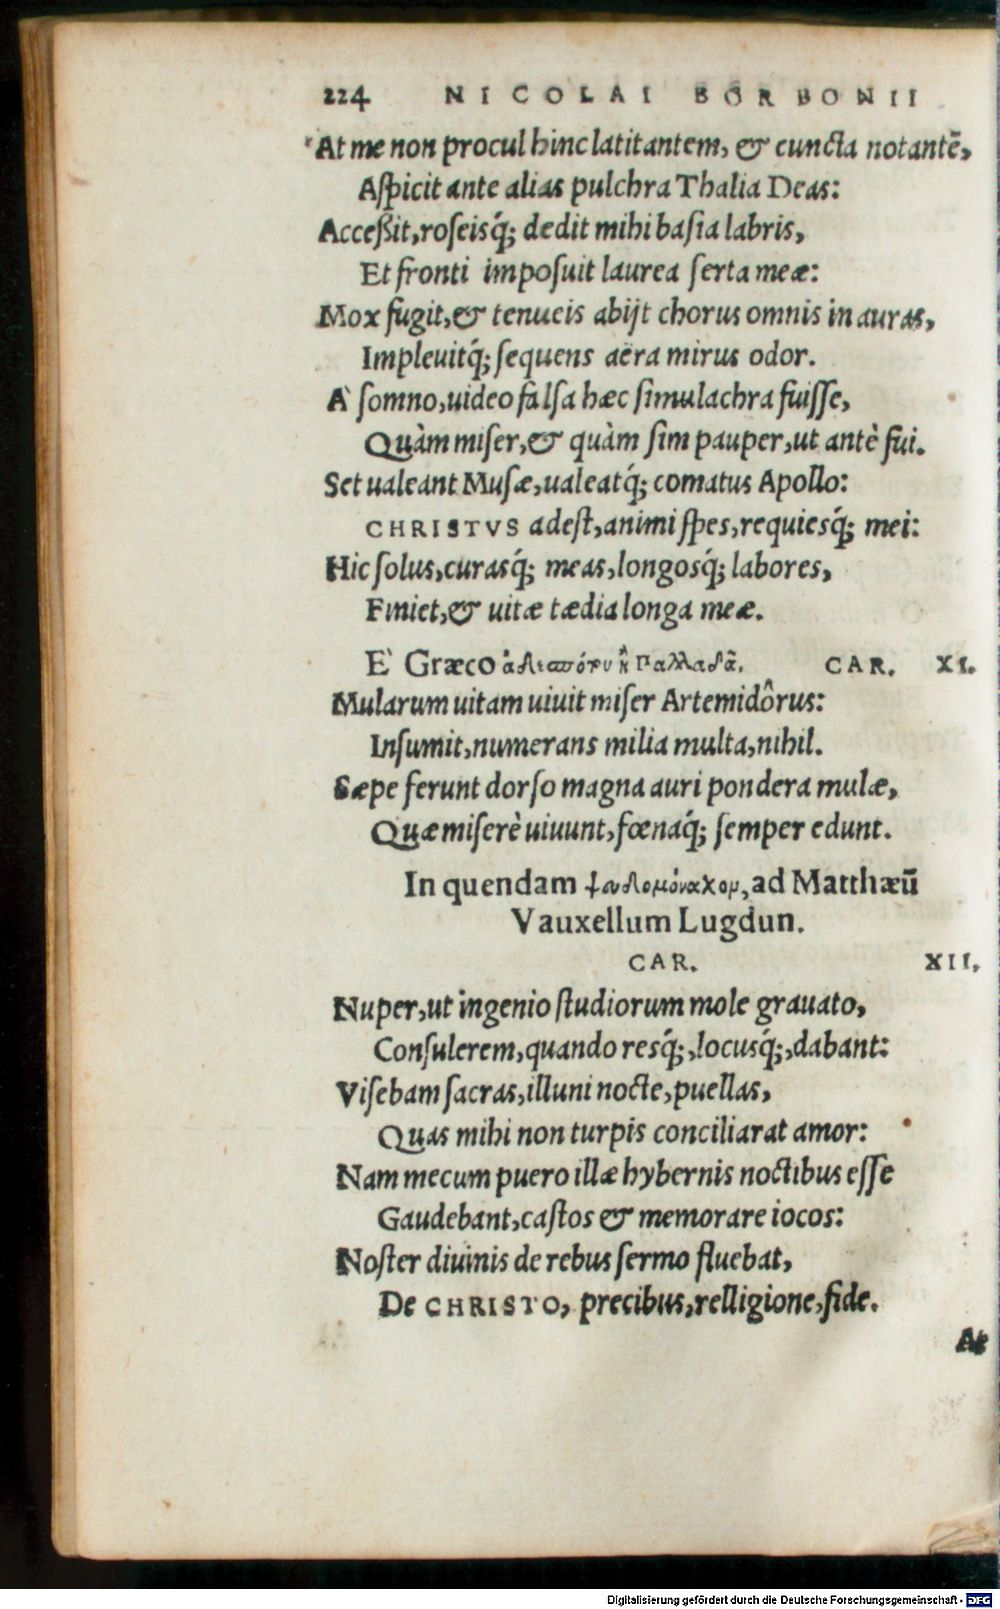 224 NICOLAI BORBONII
At me non procul hinc latitantem, & cuncta notantē,
Aſpicit ante alias pulchra Thalia Deas:
Acceßit, roſeisq́; dedit mihi baſia labris,
Et fronti impoſuit laurea ſerta meæ:
Mox fugit, & tenueis abijt chorus omnis in auras,
Impleuitq́; ſequens aëra mirus odor.
À ſomno, uideo falſa hæc ſimulachra fuiſſe,
Quàm miſer, & quàm ſim pauper, ut antè fui.
Set ualeant Muſæ, ualeatq́; comatus Apollo:
CHRISTVS adeſt, animi ſpes, requiesq́; mei:
Hic ſolus, curasq́; meas, longosq́; labores,
Finiet, & uitæ tædia longa meæ.
È Græco CAR. XI.
Mularum uitam uiuit miſer Artemidôrus:
Inſumit, numerans milia multa, nihil.
Sæpe ferunt dorſo magna auri pondera mulæ,
Quæ miſerè uiuunt, fœnaq́; ſemper edunt.
In quendam ψευδομόναχον, ad Matthæū
Vauxellum Lugdun.
CAR. XII.
Nuper, ut ingenio ſtudiorum mole grauato,
Conſulerem, quando resq́;, locusq́;, dabant:
Viſebam ſacras, illuni nocte, puellas,
Quas mihi non turpis conciliarat amor:
Nam mecum puero illæ hybernis noctibus eſſe
Gaudebant, caſtos & memorare iocos:
Noſter diuinis de rebus ſermo fluebat,
De CHRISTO, precibus, relligione, fide.
At
Digitalisierung gefördert durch die Deutsche Forschungsgemeinschaft - DFG